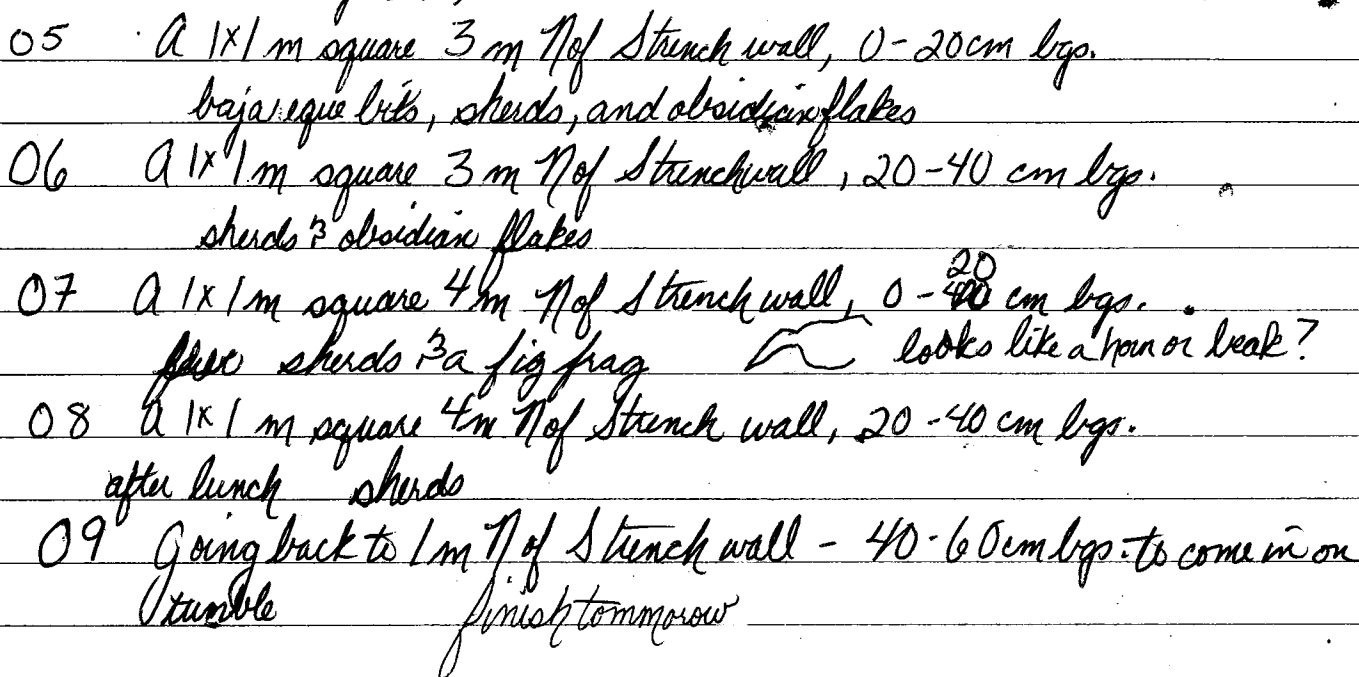 05 A 1x1 m square 3 m N of S trench wall, 0-20 cm bgs.
bajareque bits, sherds, and obsidian flakes
06 A 1x1 m square 3 m N of S trench wall, 20-40 cm bgs.
sherds & obsidian flakes
07 A 1x1 m square 4 m N of S trench wall, 0-20 cm bgs.
sherds & a fig frag looks like a horn or beak?
08 A 1x1 m square 4m N of S trench wall, 20-40 cm bgs.
after lunch sherds
09 Going back to 1m N of S trench wall - 40-60cm bgs. to come in on
tumble finish tommorow